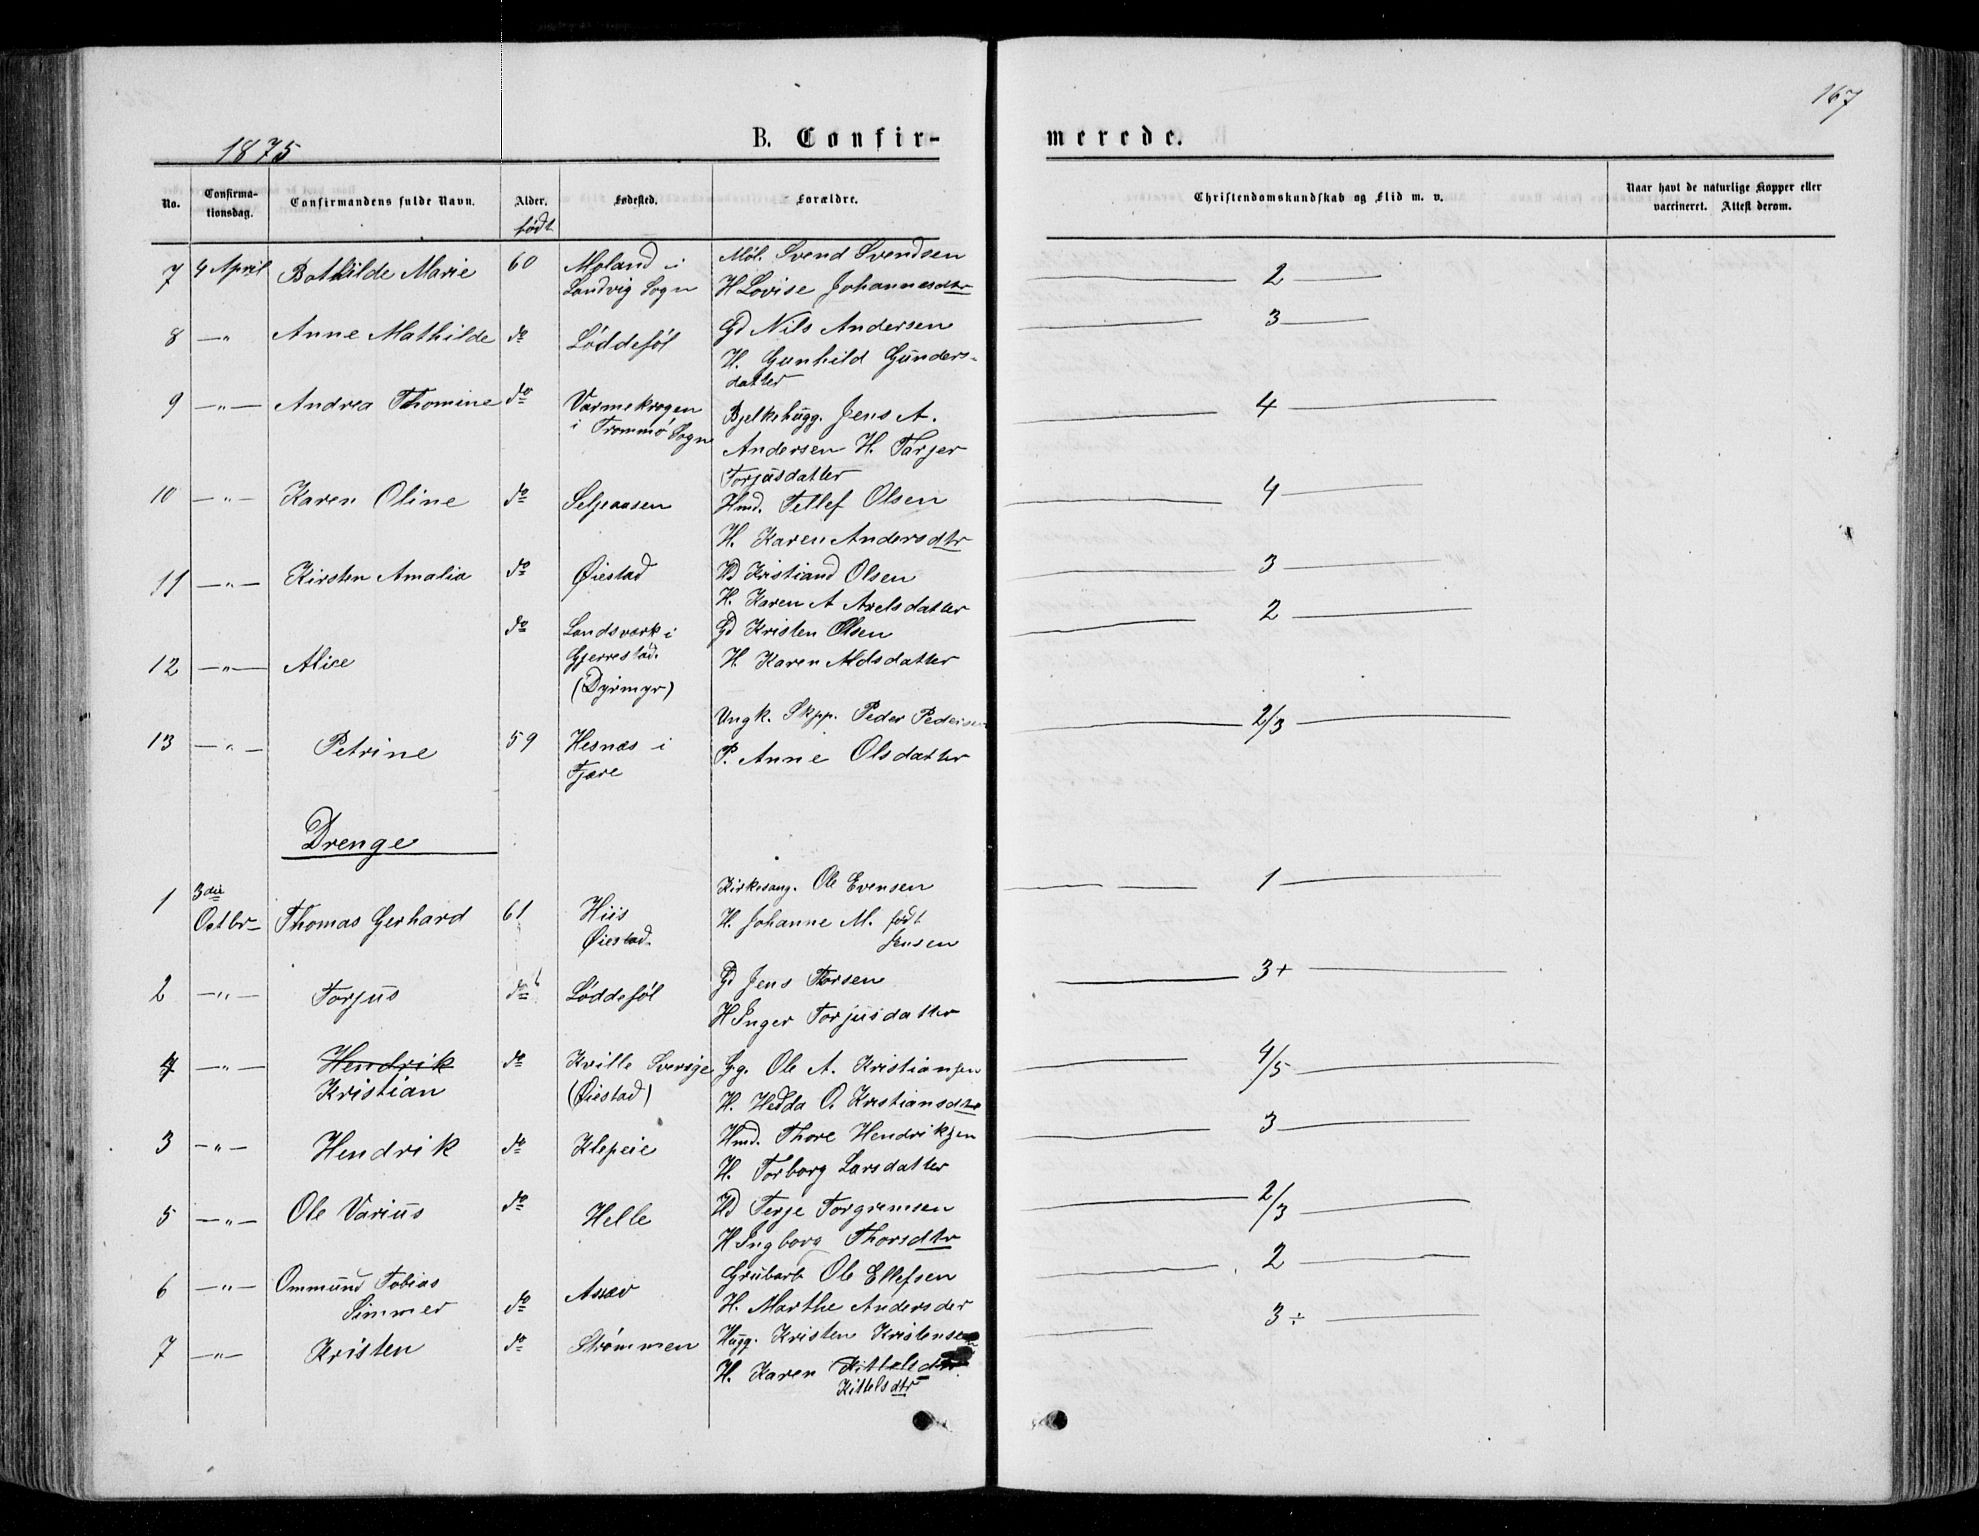 167
1875
B. Confir-
merede.
No.
Confirma-
tionsdag.
Confirmandens fulde Navn.
Alder.
født
Fødested.
Forældre.
Christendomskundskab og Flid m. v.
Naar havt de naturlige Kopper eller
vaccineret. Attest derom.
7 4 April Bathilde Marie 60 Moland i Møl. Svend Svendsen 2
Landvig Sogn H Lovise Johannesdtr
8 — " Anne Mathilde do Løddesøl Gd Nils Andersen 3
H. Gunhild Gunders-
datter
9 — " — Andrea Thomine do Varmekrogen Bjelkehugg. Jens A. 4
i Trommø Sogn Andersen H. Tarjer
Torjusdatter
10 — " — Karen Oline do Seljeaasen Hmd. Tellef Olsen 4
H. Karen Andersdtr
11 — " — Kirsten Amalia do Øiestad Hd Kristiand Olsen 3
H. Karen A Axelsdatter
12 — " — Alice do Landsværk i Gd Kristen Olsen 2
Gjerrestad. H. Karen Aldsdatter
(Dyrmyr)
13 — " — Petrine 59 Hesnæs i Ungk. Skpp. Peder Pedersen 2/3
Fjære P. Anne Olsdatter
Drenge
1 3die Kirkesang. Ole Evensen 1
Octbr Thomas Gerhard 61 Hiis H. Johanne M. født
Øiestad. Jensen
2 — " — Torjus do Løddesøl Gd Jens Torsen 3+
H Inger Torjusdatter
4 — " — Hendrik do Kville Sverige Gg. Ole A. Kristiansen 4/5
Kristian (Øiestad) H. Hedda O. Kristiansdtr
3 — " — Hendrik do Klepeie Hmd. Thore Hendriksen 3
H. Torborg Larsdatter
5 — " — Ole Varius do Helle Hd Terje Torgrimsen 2/3
H Ingborg Thorsdtr
6 — " — Ommund Tobias Grubarb Ole Ellefsen 2
Simmer do Assev H. Marthe Andersder
7 — " — Kristen do Strømmen Hugg. Kristen Kristensen 3 ÷
H. Karen Kittelsdtr
Kittelsdtr